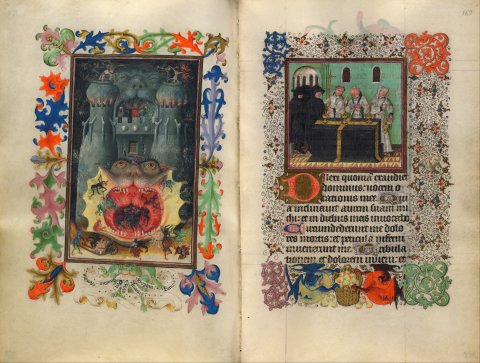 169
Dilexi quoniam exaudiet
dominus: vocem o
rationis mee Qui
a inclinavit aurem suam mi
chi: et in diebus meis invocabo
Circumdederunt me dolo
res mortis: et pericula inferni
invenerunt me Tribula
tionem et dolorem inveni: et